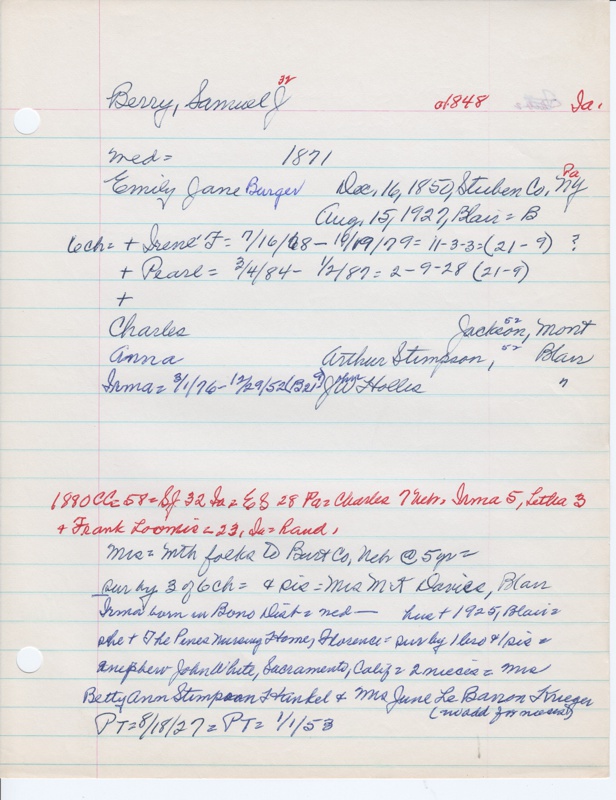 32
Berry, Samuel J a1848 Ia.
med= 1871
Pa
Emily Jane Burger Dec, 16, 1850, Stuben Co, Ny
Aug, 15, 1927, Blair = B
6ch= + Irene F= 7/16/68 - 10/19/79 = 11-3-3=(21-9) ?
+ Pearl = 3/4/84 - 1/2/87 = 2-9-28 (21-9)
+
Charles Jackson, 52 Mont
Anna Arthur Stimpson, 52 Blair
Irma = 3/1/76 - 12/29/52 (B21-9) JW Hollis "
1880 CC= 58 = SJ 32 Ia = EJ 28 Pa = Charles 7 Neb, Irma 5, Letha 3
+ Frank Loomis = 23, Ia = hand,
Mrs = Mth folks to Burt Co, Neb @ 5 yr =
sur by 3 of 6ch = & sis = Mrs M K Davies, Blair
Irma born in Bono Dist = med — hus + 1925, Blair =
she + The Pines Nursing Home, Florence = sur by 1 bro & 1 sis =
a nephew John White, Sacramento, Calif = 2 nieces = Mrs
Betty Ann Stimpson Hinkel & Mrs June Le Barron Krieger
(no add for nieces)
PT=8/18/27 = PT= 1/1/53